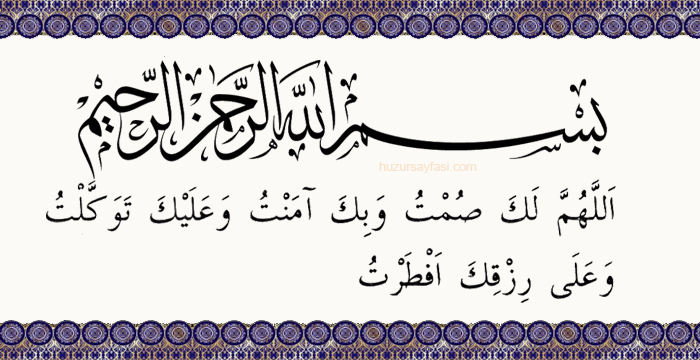 بسم الله الرحمن الرحيم
huzursayfasi.com
اَللَّهُمَّ لَكَ صُمْتُ وَبِكَ آمَنْتُ وَعَلَيْكَ تَوَكَّلْتُ
وَعَلَى رِزْقِكَ اَفْطَرْتُ